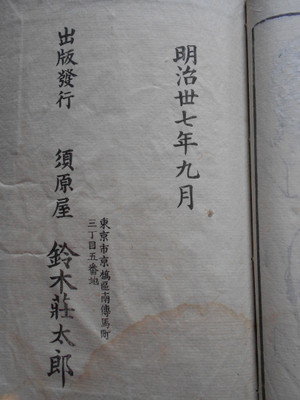 明治丗七年九月
東京市京橋區南傳馬町
三丁目五番地
出版發行　須原屋　鈴木莊太郎